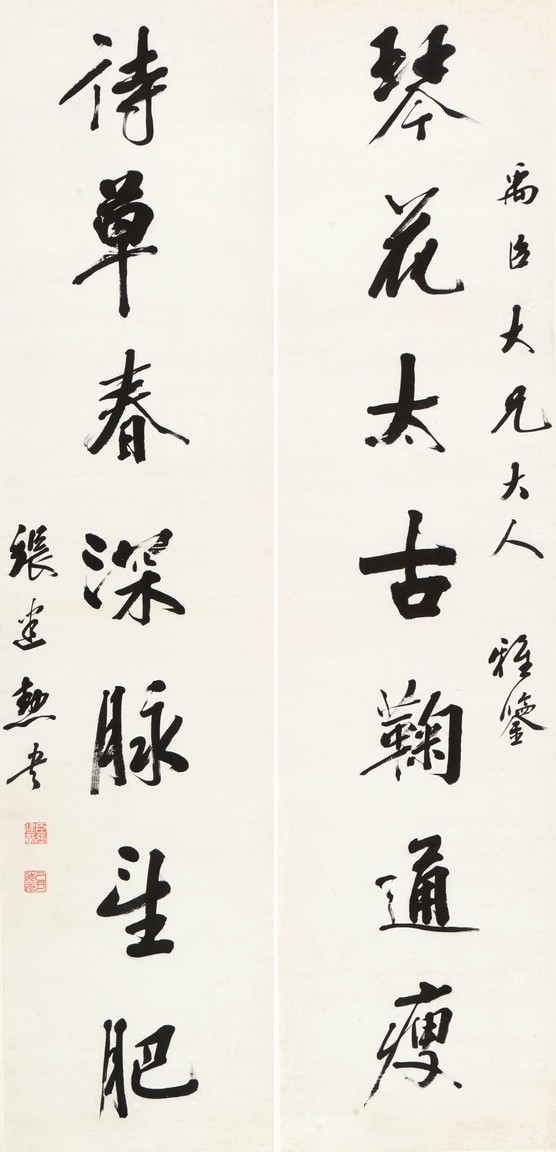 禹臣大兄大人雅鑒
琴花太古鞠通瘦
待草春深脉望肥
張建勳書